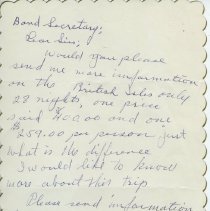 Band Secretary;
Dear Sir;
Would you please
send me more information
on the British Isles only
22 nights, one price
said 400.00 and one
$259.00 per person just
what is the difference
I would like to know
more about this trip
Please send information